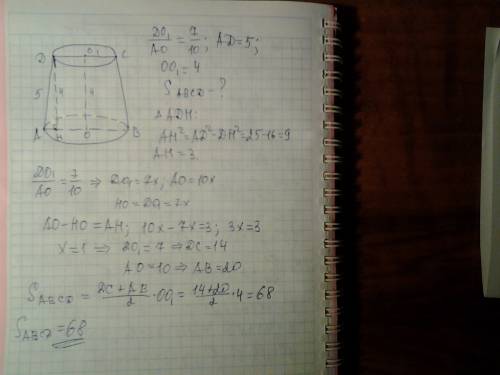 DO₁/AO = 7/10; AD=5;
OO₁ = 4
S ABCD - ?
D O₁ C
5 4 4
A H O B
△ADH:
AH² = AD² - DH² = 25-16 = 9
AH = 3
DO₁/AO = 7/10 ⇒ DO₁ = 7x, AO = 10x
HO = DO₁ = 7x
AO - HO = AH; 10x - 7x = 3; 3x = 3
x = 1 ⇒ DO₁ = 7 ⇒ DC = 14
AO = 10 ⇒ AB = 20
S ABCD = (DC + AB)/2 · OO₁ = (14+20)/2 · 4 = 68
S ABCD = 68